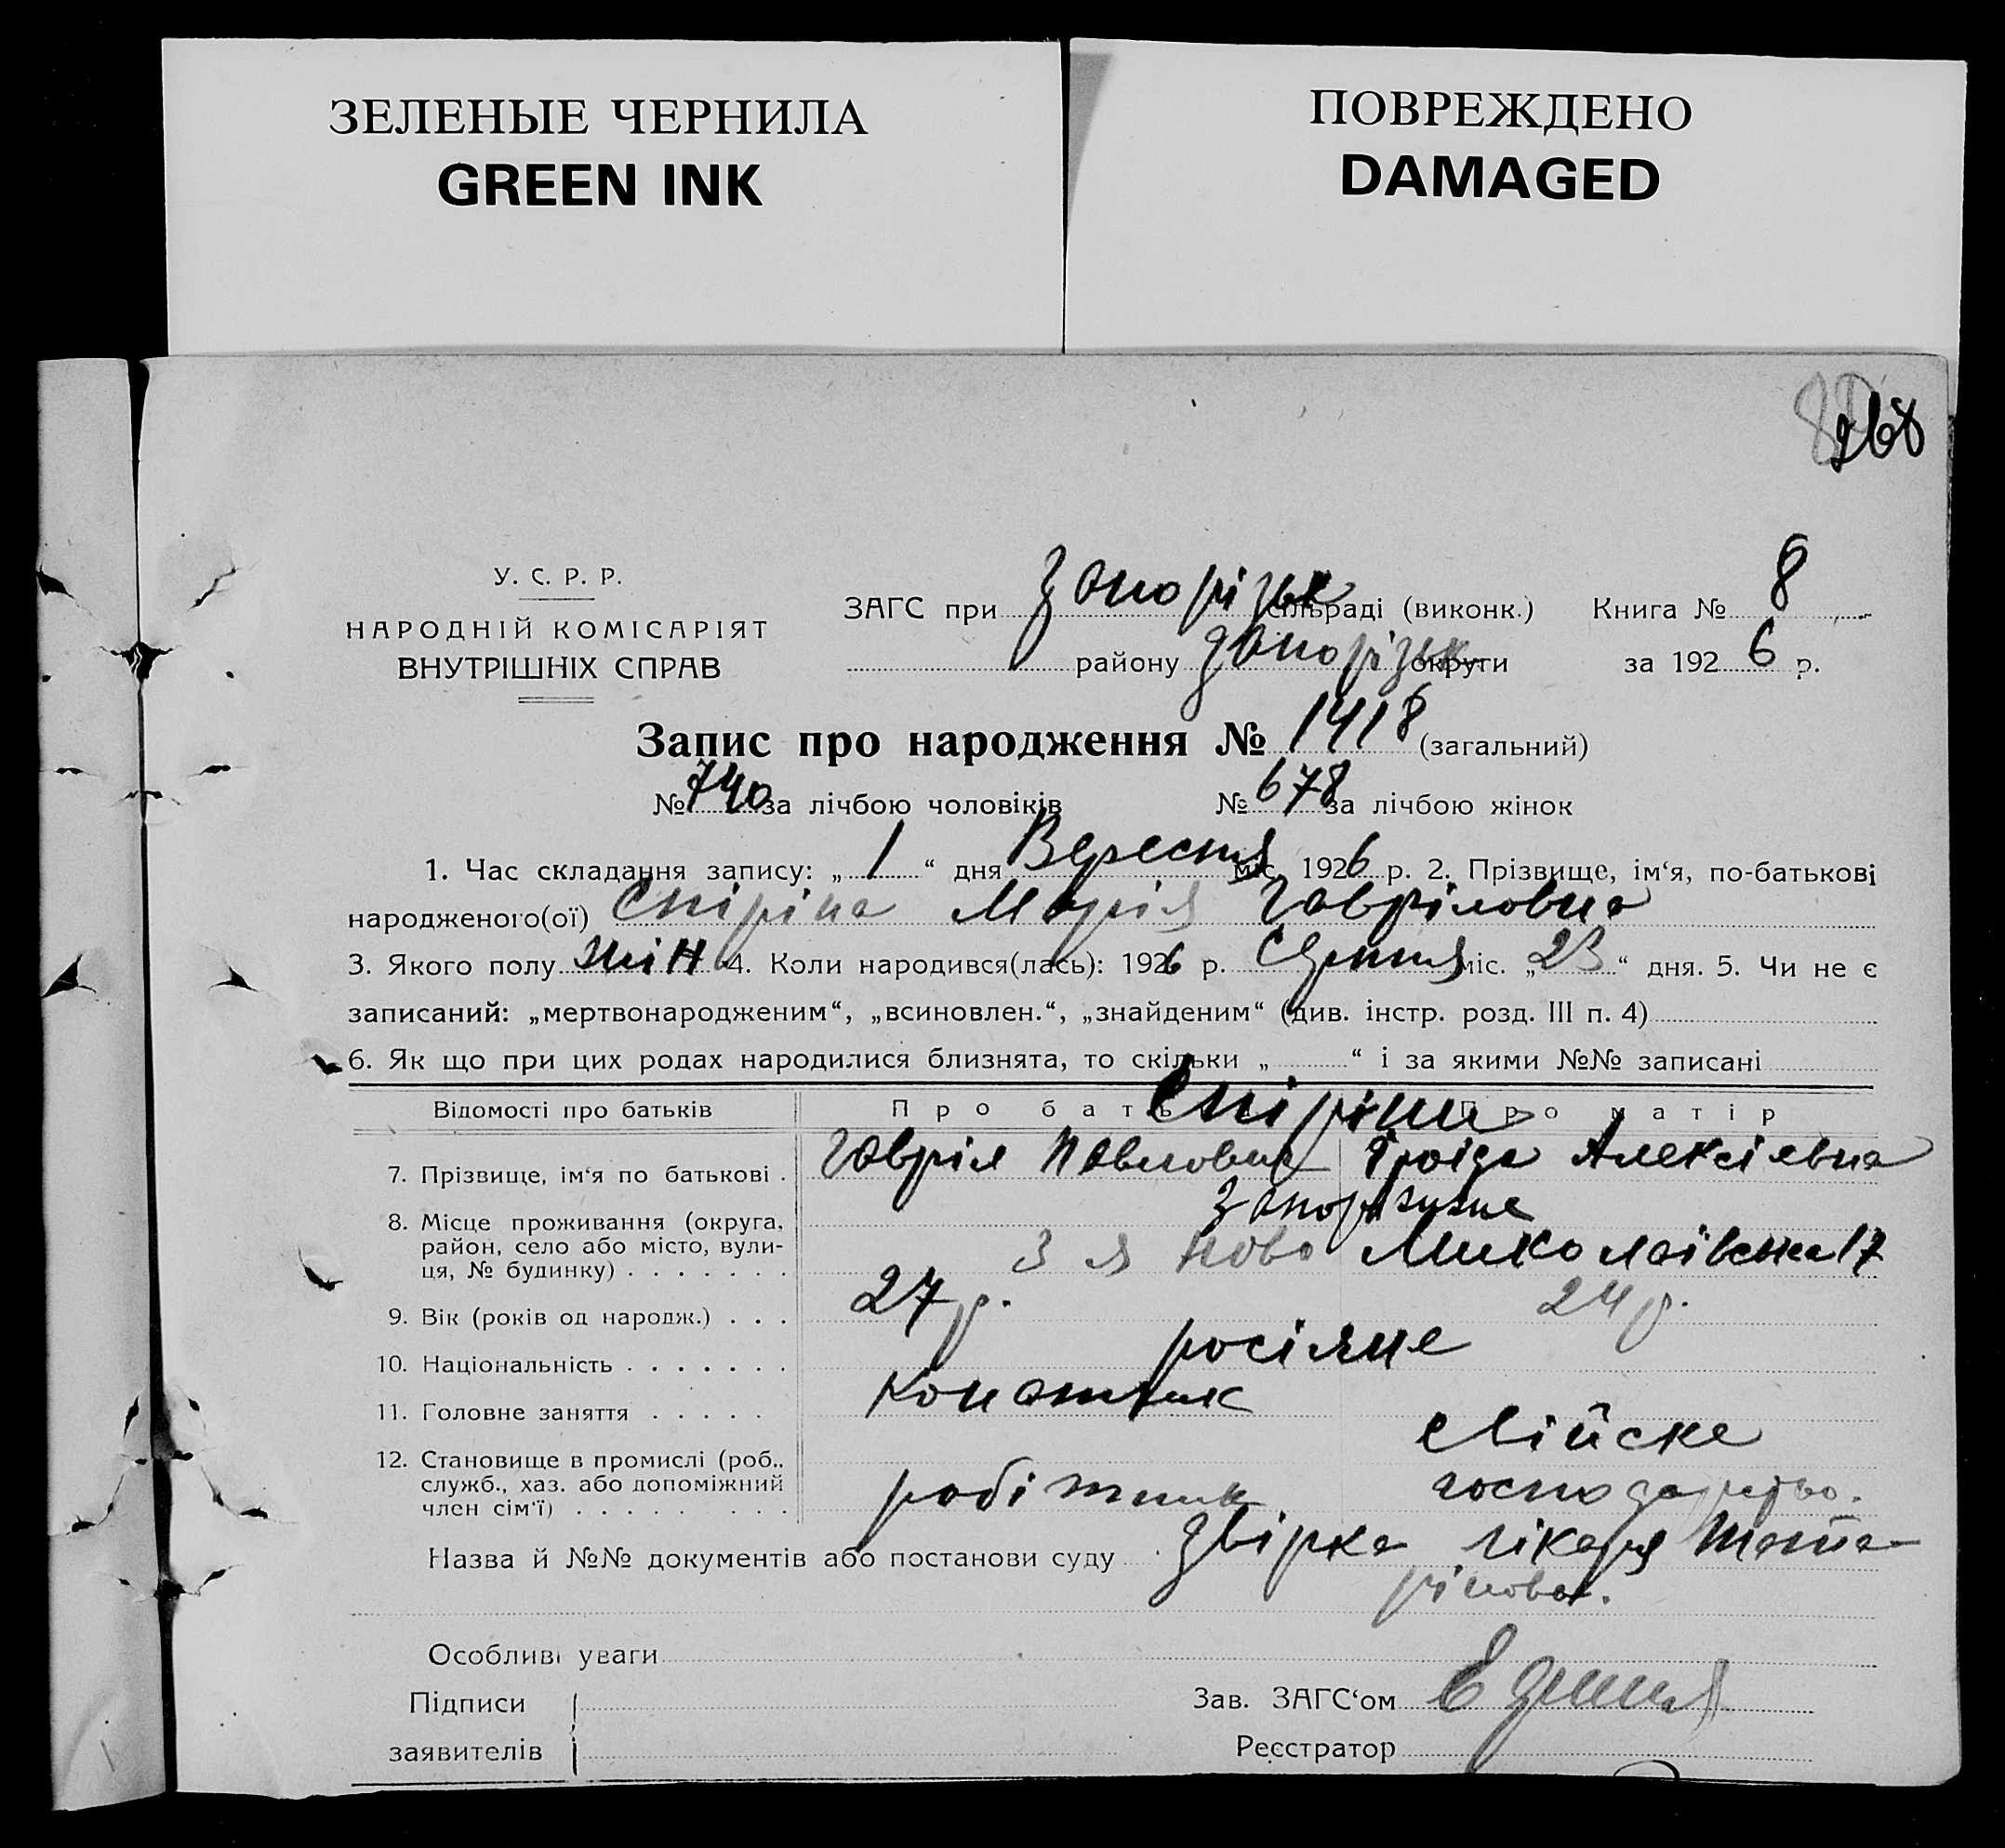 ЗЕЛЕНЫЕ ЧЕРНИЛА
GREEN INK
ПОВРЕЖДЕНО
DAMAGED
268
У. С. Р. Р.
НАРОДНІЙ КОМІСАРІЯТ
ВНУТРІШНІХ СПРАВ
ЗАГС при Запорізьк сільраді (виконк.) Книга № 8
району Запорізьк округи за 1926 р.
Запис про народження № 1418 (загальний)
№ 740 за лічбою чоловіків № 678 за лічбою жінок
1. Час складання запису: „ 1 “ дня Вересня міс. 1926 р. 2. Прізвище, ім‘я, по-батькові
народженого(ої) Спіріна Марія Гавріловна
3. Якого полу жін 4. Коли народився(лась): 1926 р. Серпня міс. „ 23 “ дня. 5. Чи не є
записаний: „мертвонародженим“, „всиновлен.“, „знайденим“ (див. інстр. розд. III п. 4)
6. Як що при цих родах народилися близнята, то скільки „ “ і за якими №№ записані
Відомості про батьків Про батька Про матір
Спіріни
7. Прізвище, ім‘я по батькові . Гавріл Павлович Іроіда Алексієвна
8. Місце проживання (округа, район, село або місто, вулиця, № будинку) . . . . . . . Запоріжжє
3 я Ново Миколаївска 17
9. Вік (років од народж.) . . . 27 р. 24 р.
10. Національність . . . . . . . росіяне
11. Головне заняття . . . . . Канатник
12. Становище в промислі (роб., служб., хаз. або допоміжний член сім‘ї) . . . . . . . . робітник свійске господарство.
Назва й №№ документів або постанови суду звірка лікаря
Особливі уваги
Підписи
заявителів
Зав. ЗАГС‘ом
Реєстратор